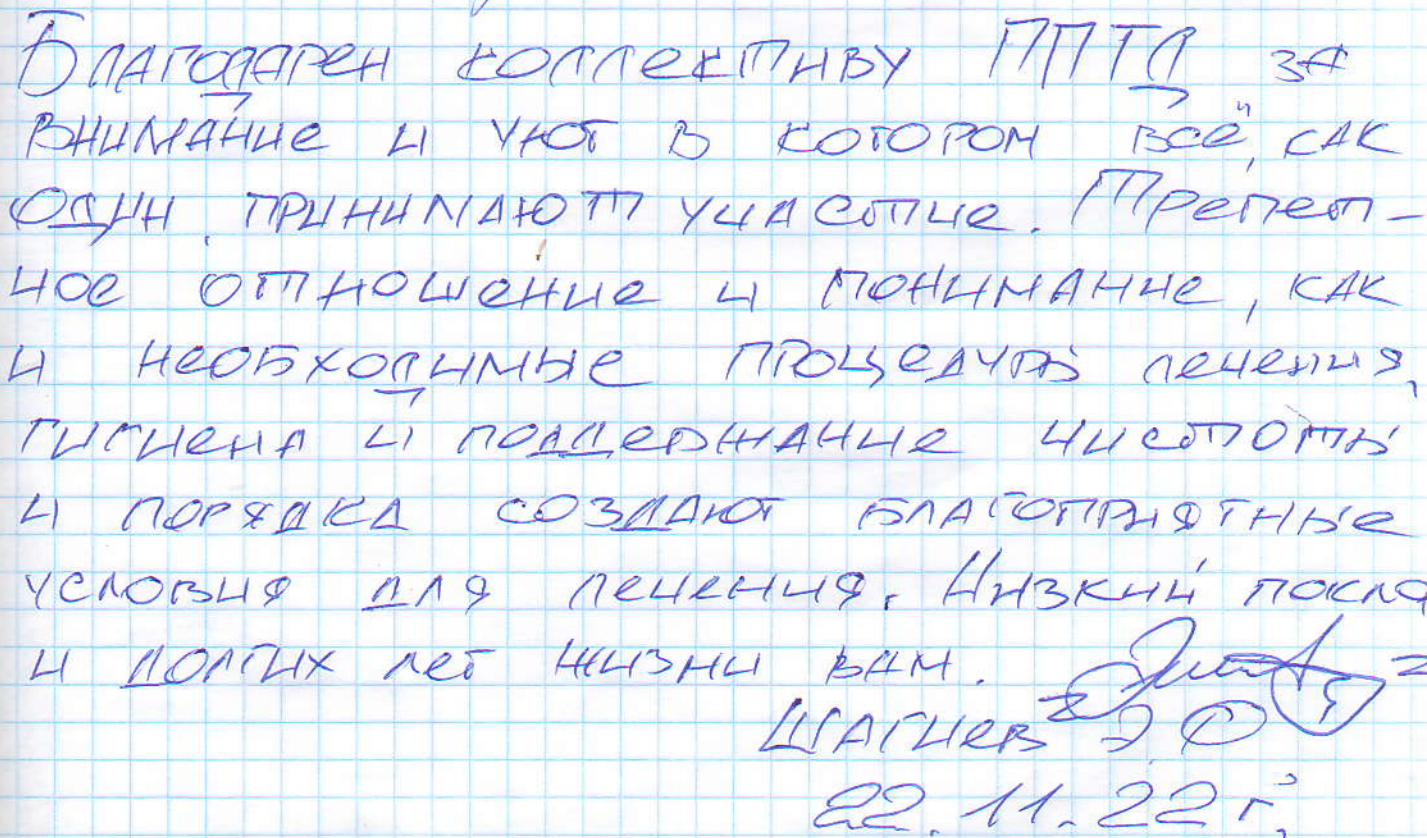 Благодарен коллективу ППТД за
внимание и уют в котором всё, как
один, принимают участие. Трепет-
ное отношение и понимание, как
и необходимые процедуры лечения,
гигиена и поддержание чистоты
и порядка создают благоприятные
условия для лечения. Низкий покло
и долгих лет жизни вам.
Шагиев Э Ф
22.11.22 г.